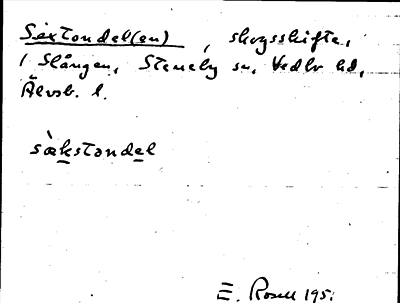 Sextondel(en) , skogsskifte,
i Slången, Steneby sn, Vedbo hd,
Älvsb. l.
sækstondel
E. Rosell 195.